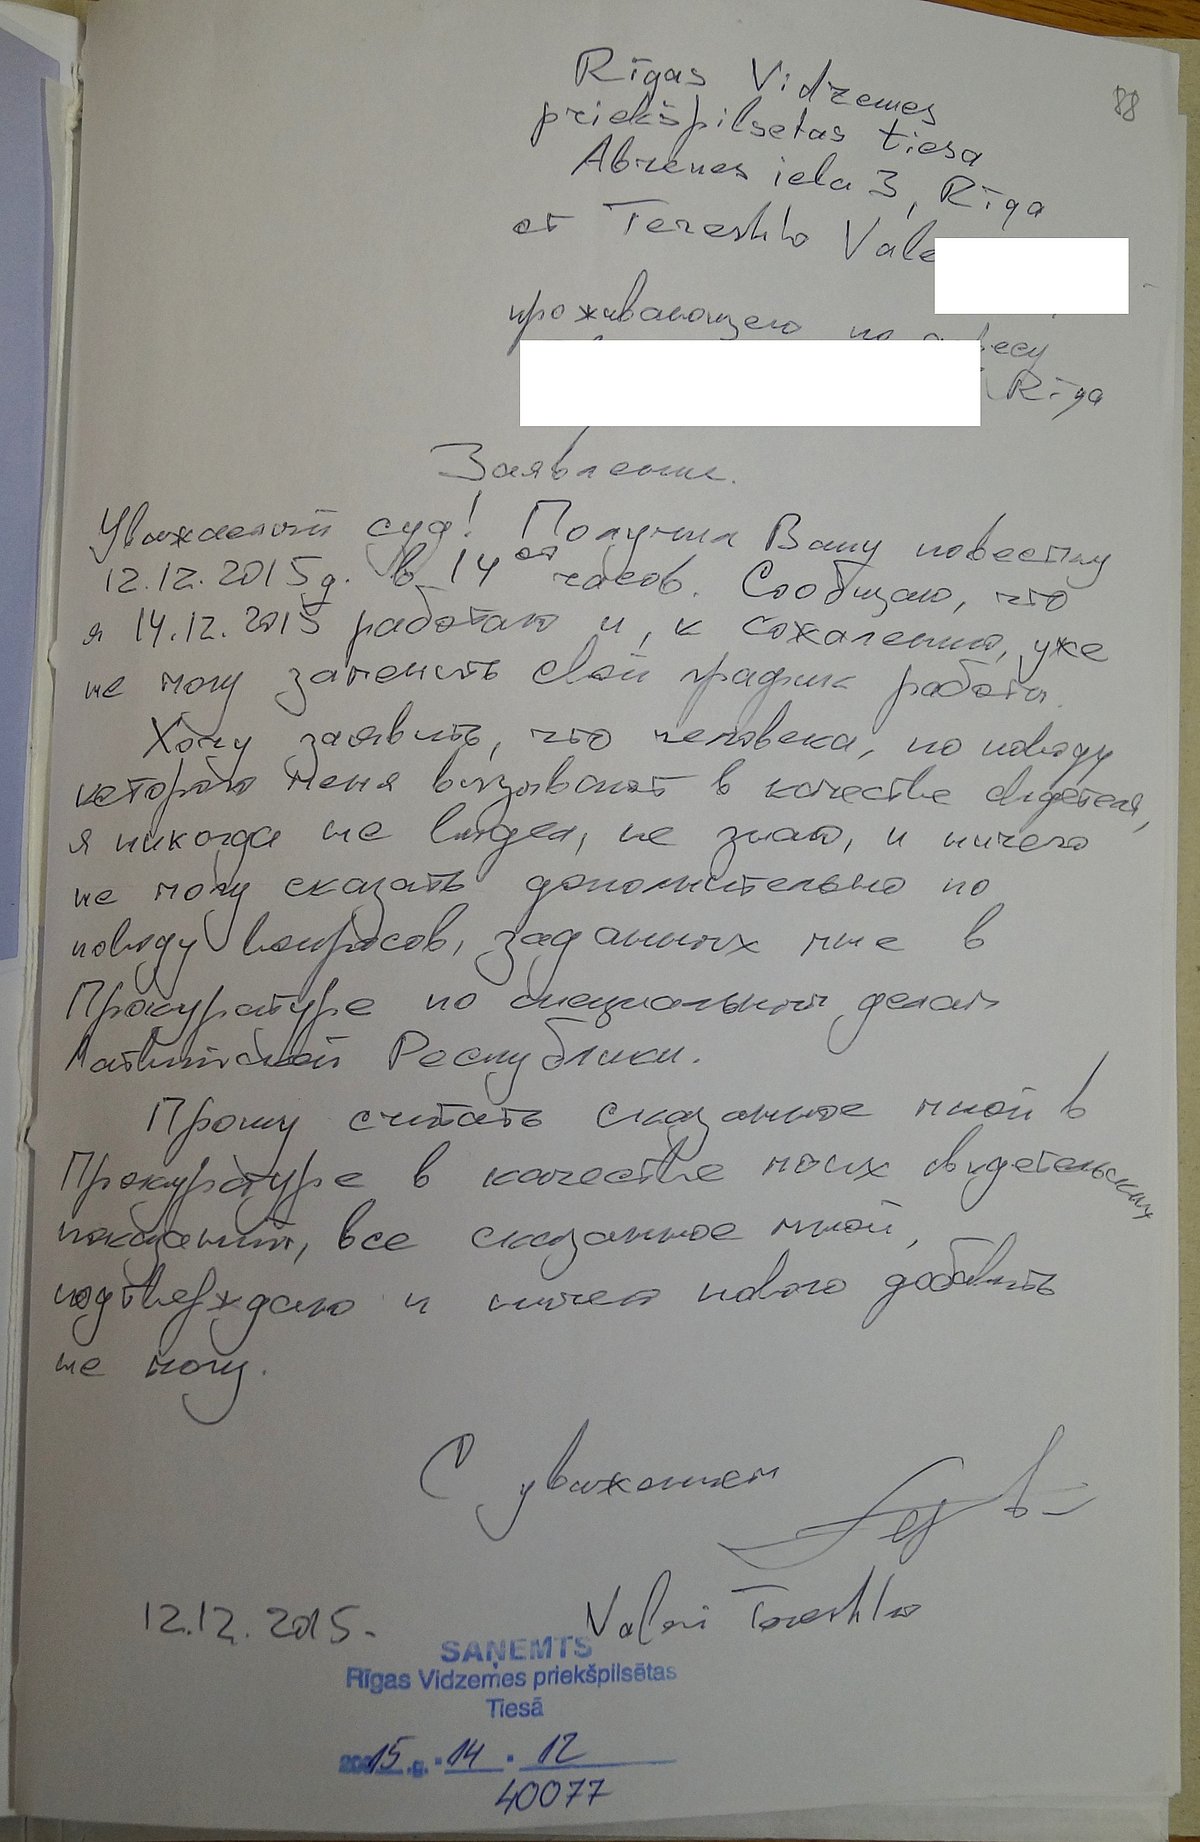 88
Rīgas Vidzemes
priekšpilsetas tiesa
Abrenes iela 3, Rīga
от Tereshko Vale
проживающего по адресу
Rīga
Заявление.
Уважаемый суд! Получил Вашу повестку
от
12.12.2015г. в 14 часов. Сообщаю, что
я 14.12.2015 работаю и, к сожалению, уже
не могу изменить свой график работы.
Хочу заявить, что человека, по поводу
которого меня вызывают в качестве свидетеля,
я никогда не видел, не знаю, и ничего
не могу сказать дополнительно по
поводу вопросов, заданных мне в
Прокуратуре по специальным делам
Латвийской Республики.
Прошу считать сказанное мной в
Прокуратуре в качестве моих свидетельских
показаний, все сказанное мной,
подтверждаю и ничего нового добавить
не могу.
С уважением
Valeri Tereshko
12.12.2015.
SAŅEMTS
Rīgas Vidzemes priekšpilsētas
Tiesā
2015.g. 14. 12
40077